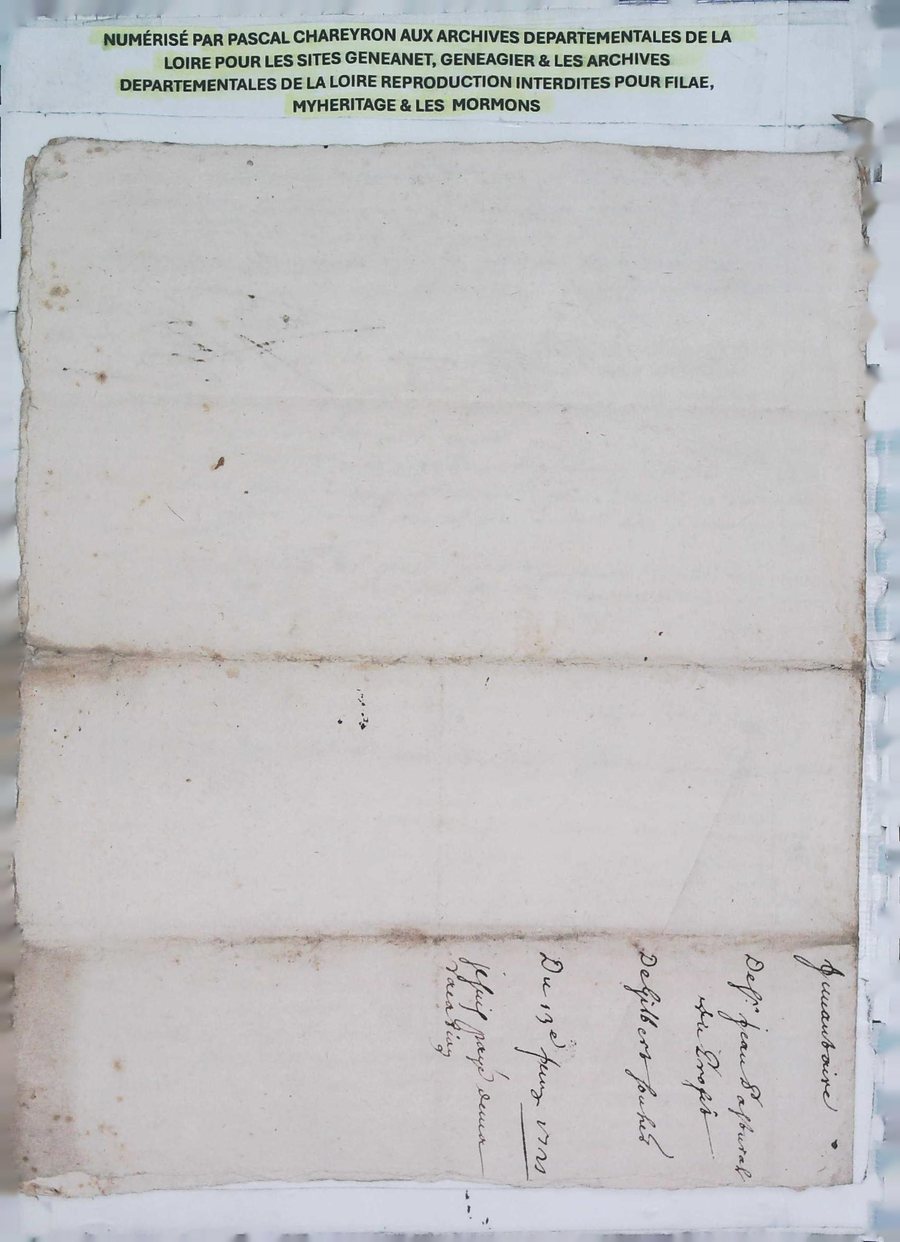 NUMÉRISÉ PAR PASCAL CHAREYRON AUX ARCHIVES DEPARTEMENTALES DE LA
LOIRE POUR LES SITES GENEANET, GENEAGIER & LES ARCHIVES
DEPARTEMENTALES DE LA LOIRE REPRODUCTION INTERDITES POUR FILAE,
MYHERITAGE & LES MORMONS
Inuantaire
De Sr. jean
du
De Gilbert
Du 13e
je suis payé de ma
vacation